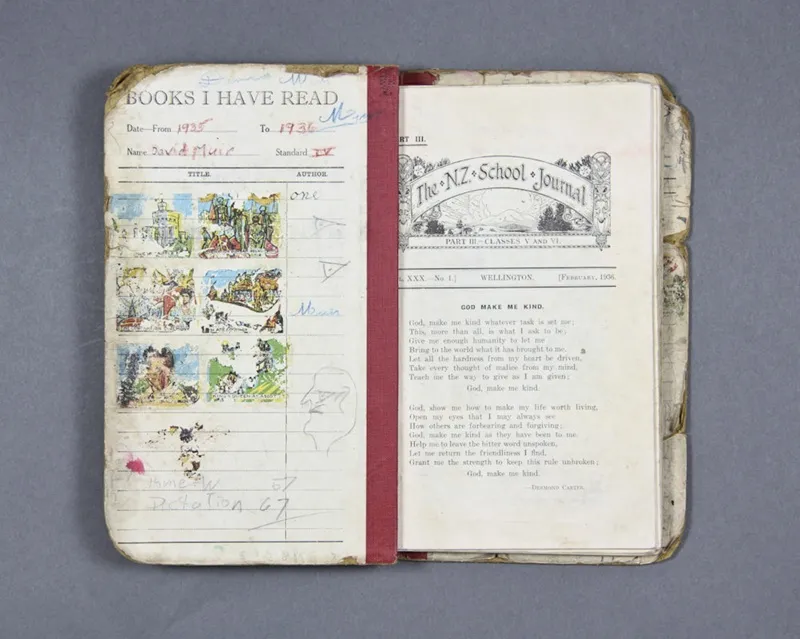 BOOKS I HAVE READ
Date—From 1935 To 1936
Name David Muir Standard IV
TITLE. AUTHOR.
one
Muir
Dictation 67
67
RT III.
The N.Z. School Journal
PART III.—CLASSES V AND VI.
XXX.—No 1.] WELLINGTON. [FEBRUARY, 1936.
GOD MAKE ME KIND.
God, make me kind whatever task is set me;
This, more than all, is what I ask to be;
Give me enough humanity to let me
Bring to the world what it has brought to me.
Let all the hardness from my heart be driven,
Take every thought of malice from my mind,
Teach me the way to give as I am given;
God, make me kind.
God, show me how to make my life worth living,
Open my eyes that I may always see
How others are forbearing and forgiving;
God, make me kind as they have been to me.
Help me to leave the bitter word unspoken,
Let me return the friendliness I find,
Grant me the strength to keep this rule unbroken;
God, make me kind.
—DESMOND CARTER.